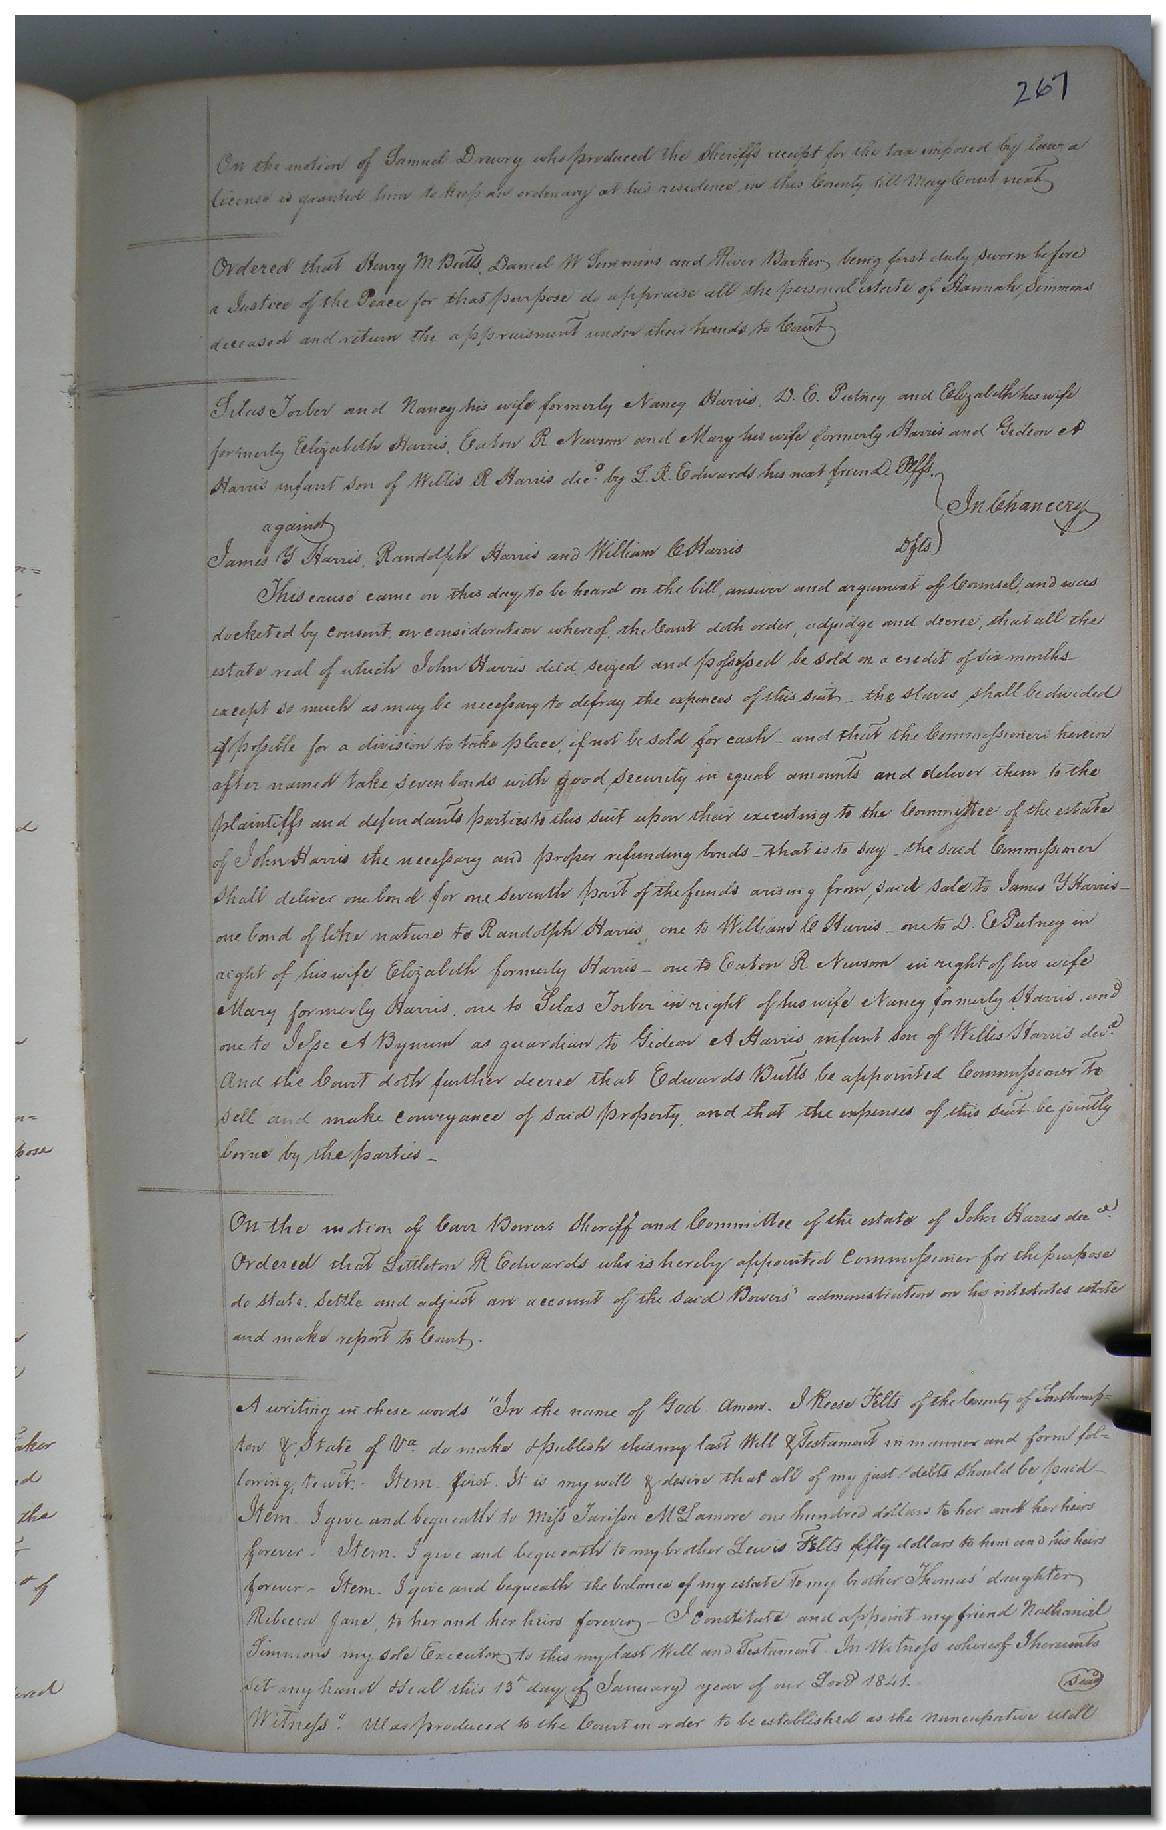 267
On the motion of Samuel Drewry who produced the Sheriffs receipt for the tax imposed by law a
license is granted him to keep an ordinary at his residence in this County till May Court next
Ordered that Henry M Butts, Daniel W Simmons and River Barker, being first duly sworn before
a Justice of the Peace for that purpose do appraise all the personal estate of Hannah Simmons
deceased and return the appraisment under their hands to Court
Silas Torber and Nancy his wife formerly Nancy Harris, D. E. Putney and Elizabeth his wife
formerly Elizabeth Harris, Eaton R Newsom and Mary his wife formerly Harris and Gideon A
Harris infant son of Willis R Harris decd. by L. R. Edwards his next friend Pltfs.
In Chancery
against
James Y Harris, Randolph Harris and William C Harris Dfts
This cause came on this day to be heard on the bill, answer and argument of Counsel, and was
docketed by consent, on consideration whereof, the Court doth order, adjudge and decree, that all the
estate real of which John Harris died, seized and possessed be sold on a credit of six months
except so much as may be necessary to defray the expences of this suit - the slaves shall be divided
if possible for a division to take place, if not be sold for cash - and that the Commissioners herein
after named take seven bonds with good security in equal amounts and deliver them to the
plaintiffs and defendants parties to this suit upon their executing to the Committee of the estate
of John Harris the necessary and proper refunding bonds - that is to say - the said Commissioner
shall deliver one bond for one seventh part of the funds arising from said sale to James Y Harris -
one bond of like nature to Randolph Harris, one to William C Harris - one to D. E Putney in
right of his wife Elizabeth formerly Harris - one to Eaton R Newsom in right of his wife
Mary formerly Harris, one to Silas Torber in right of his wife Nancy formerly Harris, and
one to Jesse A Bynum as guardian to Gideon A Harris infant son of Willis Harris decd.
And the Court doth further decree that Edwards Butts be appointed Commissioner to
sell and make conveyance of said property, and that the expenses of this suit be jointly
borne by the parties -
On the motion of Carr Bowers Sheriff and Committee of the estate of John Harris decd.
Ordered that Littleton R Edwards who is hereby appointed Commissioner for the purpose
do state, settle and adjust an account of the said Bowers' administration on his intestates estate
and make report to Court.
A writing in these words "In the name of God Amen. I Reese Felts of the County of Southamp=
ton & State of Va. do make & publish this my last Will & Testament in manner and form fol=
lowing, to wit: Item first. It is my will & desire that all of my just debts should be paid -
Item. I give and bequeath to Miss Tarisson McLamore one hundred dollars to her and her heirs
forever. Item. I give and bequeath to my brother Lewis Felts fifty dollars to him and his heirs
forever - Item. I give and bequeath the balance of my estate to my brother Thomas' daughter
Rebecca Jane, to her and her heirs forever - I constitute and appoint my friend Nathaniel
Simmons my sole Executor to this my last Will and Testament. In Witness whereof I hereunto
set my hand & seal this 13th day of January year of our Lord 1841. Seal
Witness". Was produced to the Court in order to be established as the nuncupative will